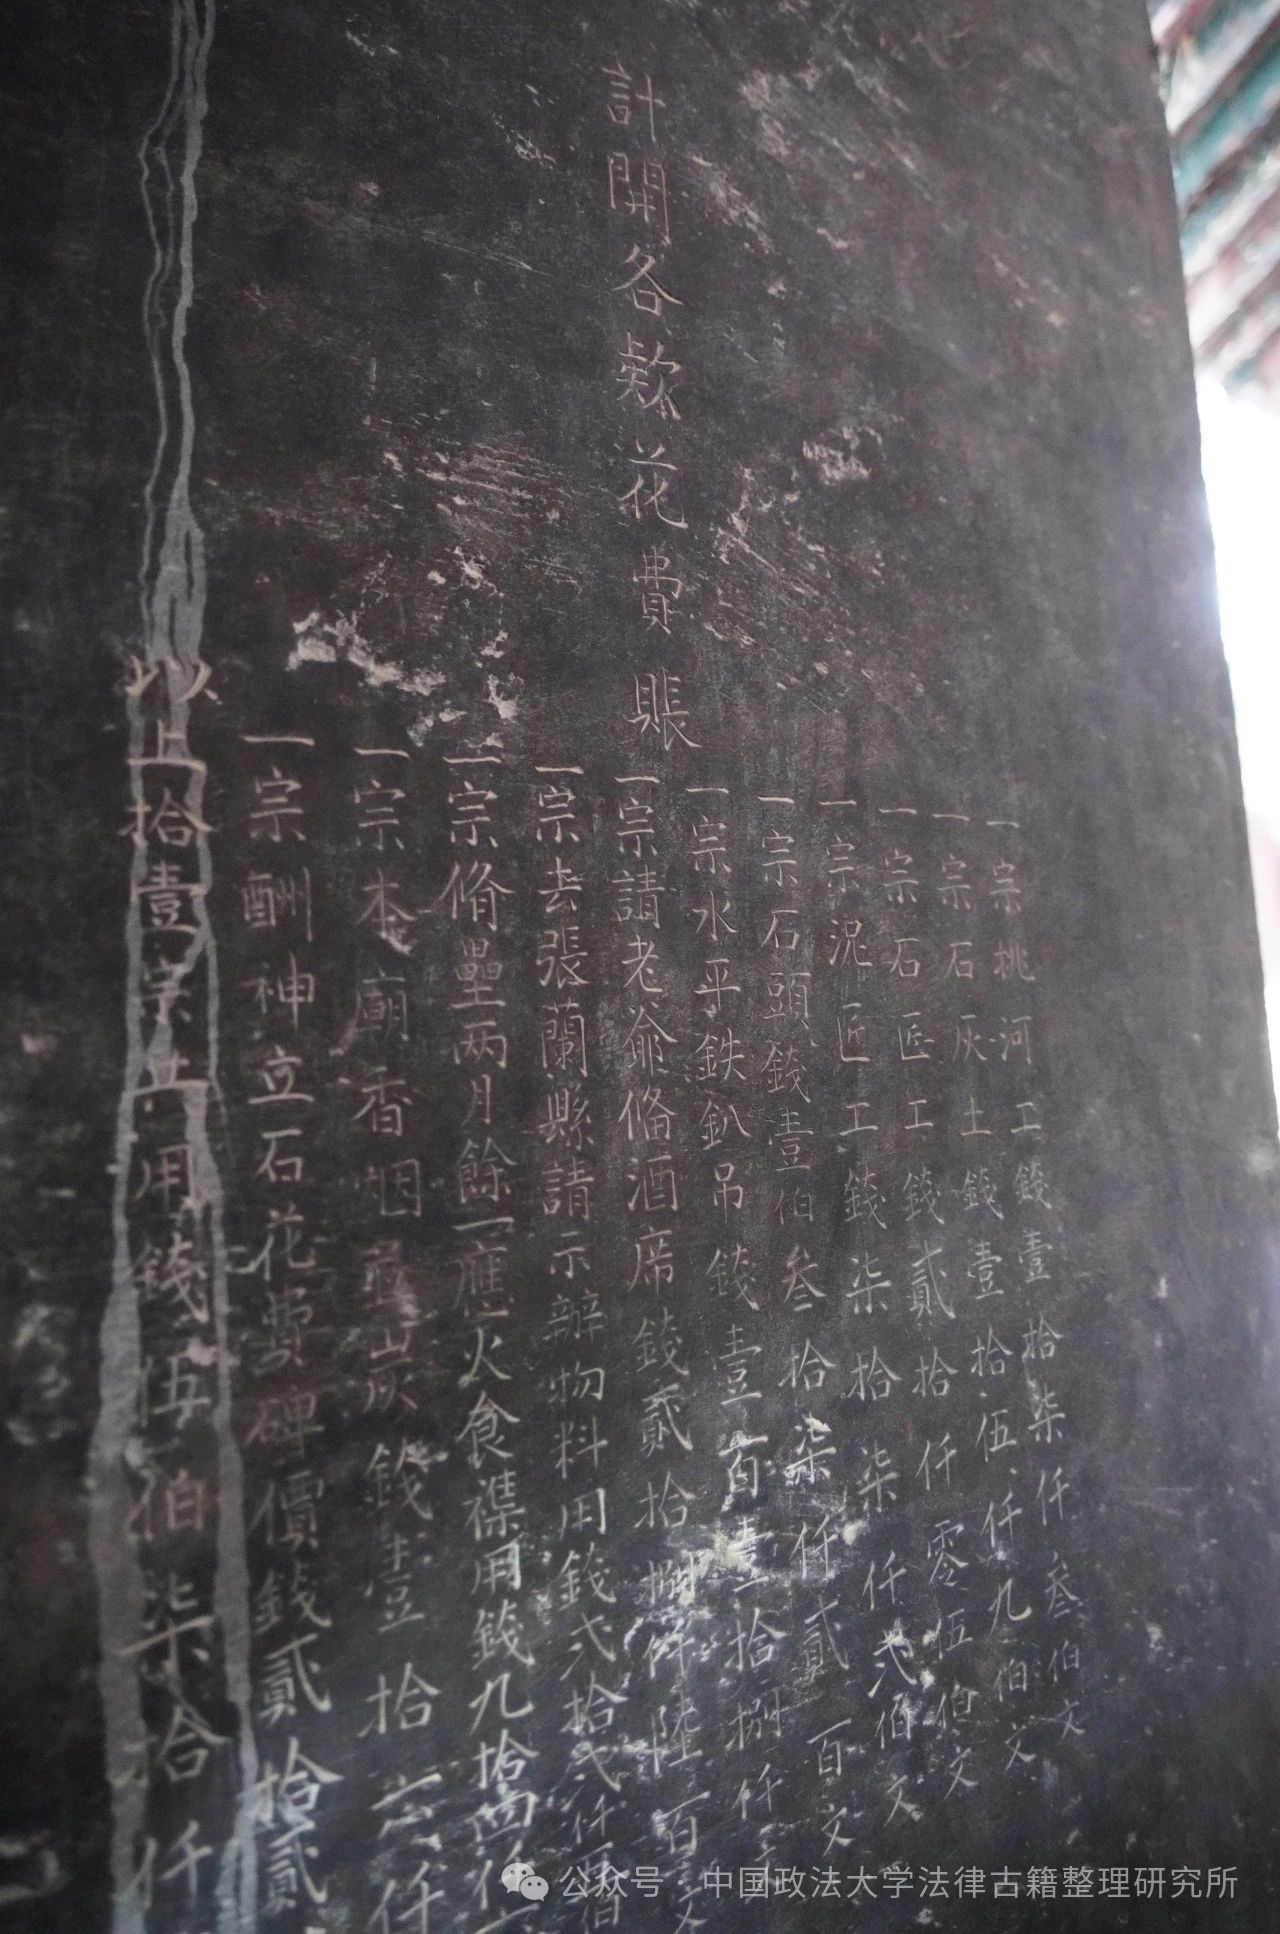 計開各欵花費賬
一宗桃河工錢壹拾柒仟叁伯文
一宗石灰土錢壹拾伍仟九伯文
一宗石匠工錢貳拾仟零伍伯文
一宗泥匠工錢柒拾柒仟弍伯文
一宗石頭錢壹伯叁拾柒仟貳百文
一宗水平鉄釟吊錢壹百壹拾捌仟
一宗請老爺俻酒席錢貳拾捌仟陸百文
一宗去張蘭縣請示辦物料用錢弍拾弍仟伯
一宗脩壘兩月餘一應火食襍用錢九拾
一宗本廟香烟灰錢壹拾六仟
一宗酬神立石花費碑價錢貳拾貳
以上拾壹宗共用錢伍伯柒拾仟
公众号·中国政法大学法律古籍整理研究所